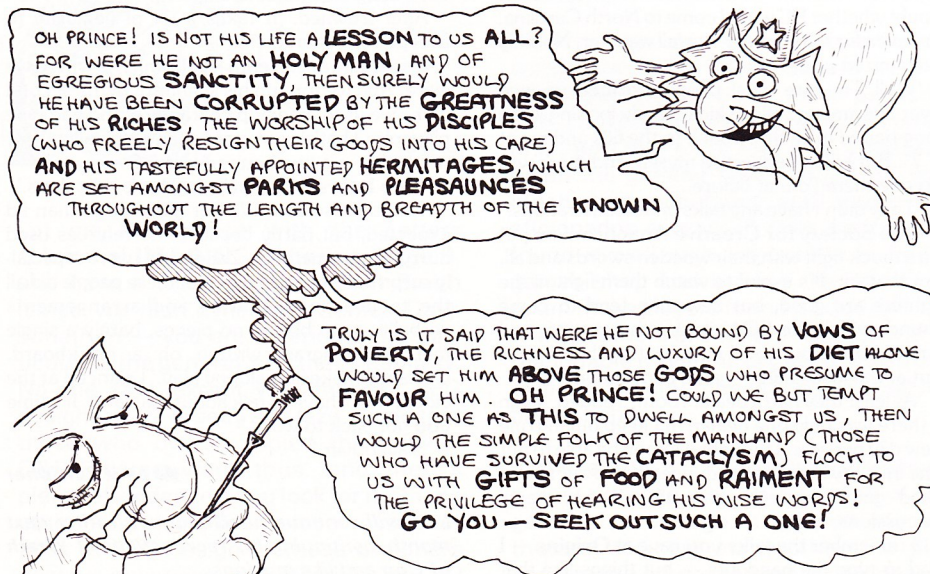 OH PRINCE! IS NOT HIS LIFE A LESSON TO US ALL?
FOR WERE HE NOT AN HOLY MAN, AND OF
EGREGIOUS SANCTITY, THEN SURELY WOULD
HE HAVE BEEN CORRUPTED BY THE GREATNESS
OF HIS RICHES, THE WORSHIP OF HIS DISCIPLES
(WHO FREELY RESIGN THEIR GOODS INTO HIS CARE)
AND HIS TASTEFULLY APPOINTED HERMITAGES, WHICH
ARE SET AMONGST PARKS AND PLEASAUNCES
THROUGHOUT THE LENGTH AND BREADTH OF THE KNOWN
WORLD!
TRULY IS IT SAID THAT WERE HE NOT BOUND BY VOWS OF
POVERTY, THE RICHNESS AND LUXURY OF HIS DIET ALONE
WOULD SET HIM ABOVE THOSE GODS WHO PRESUME TO
FAVOUR HIM. OH PRINCE! COULD WE BUT TEMPT
SUCH A ONE AS THIS TO DWELL AMONGST US, THEN
WOULD THE SIMPLE FOLK OF THE MAINLAND (THOSE
WHO HAVE SURVIVED THE CATACLYSM) FLOCK TO
US WITH GIFTS OF FOOD AND RAIMENT FOR
THE PRIVILEGE OF HEARING HIS WISE WORDS!
GO YOU — SEEK OUT SUCH A ONE!